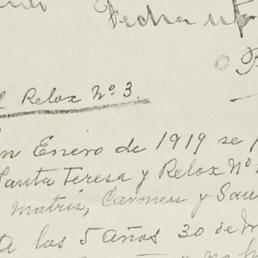 Fecha
Relox Nº 3.
n Enero de 1919 se
Santa Teresa y Relox Nº
matriz, Carmen y Sau
A los 5 años 30 de